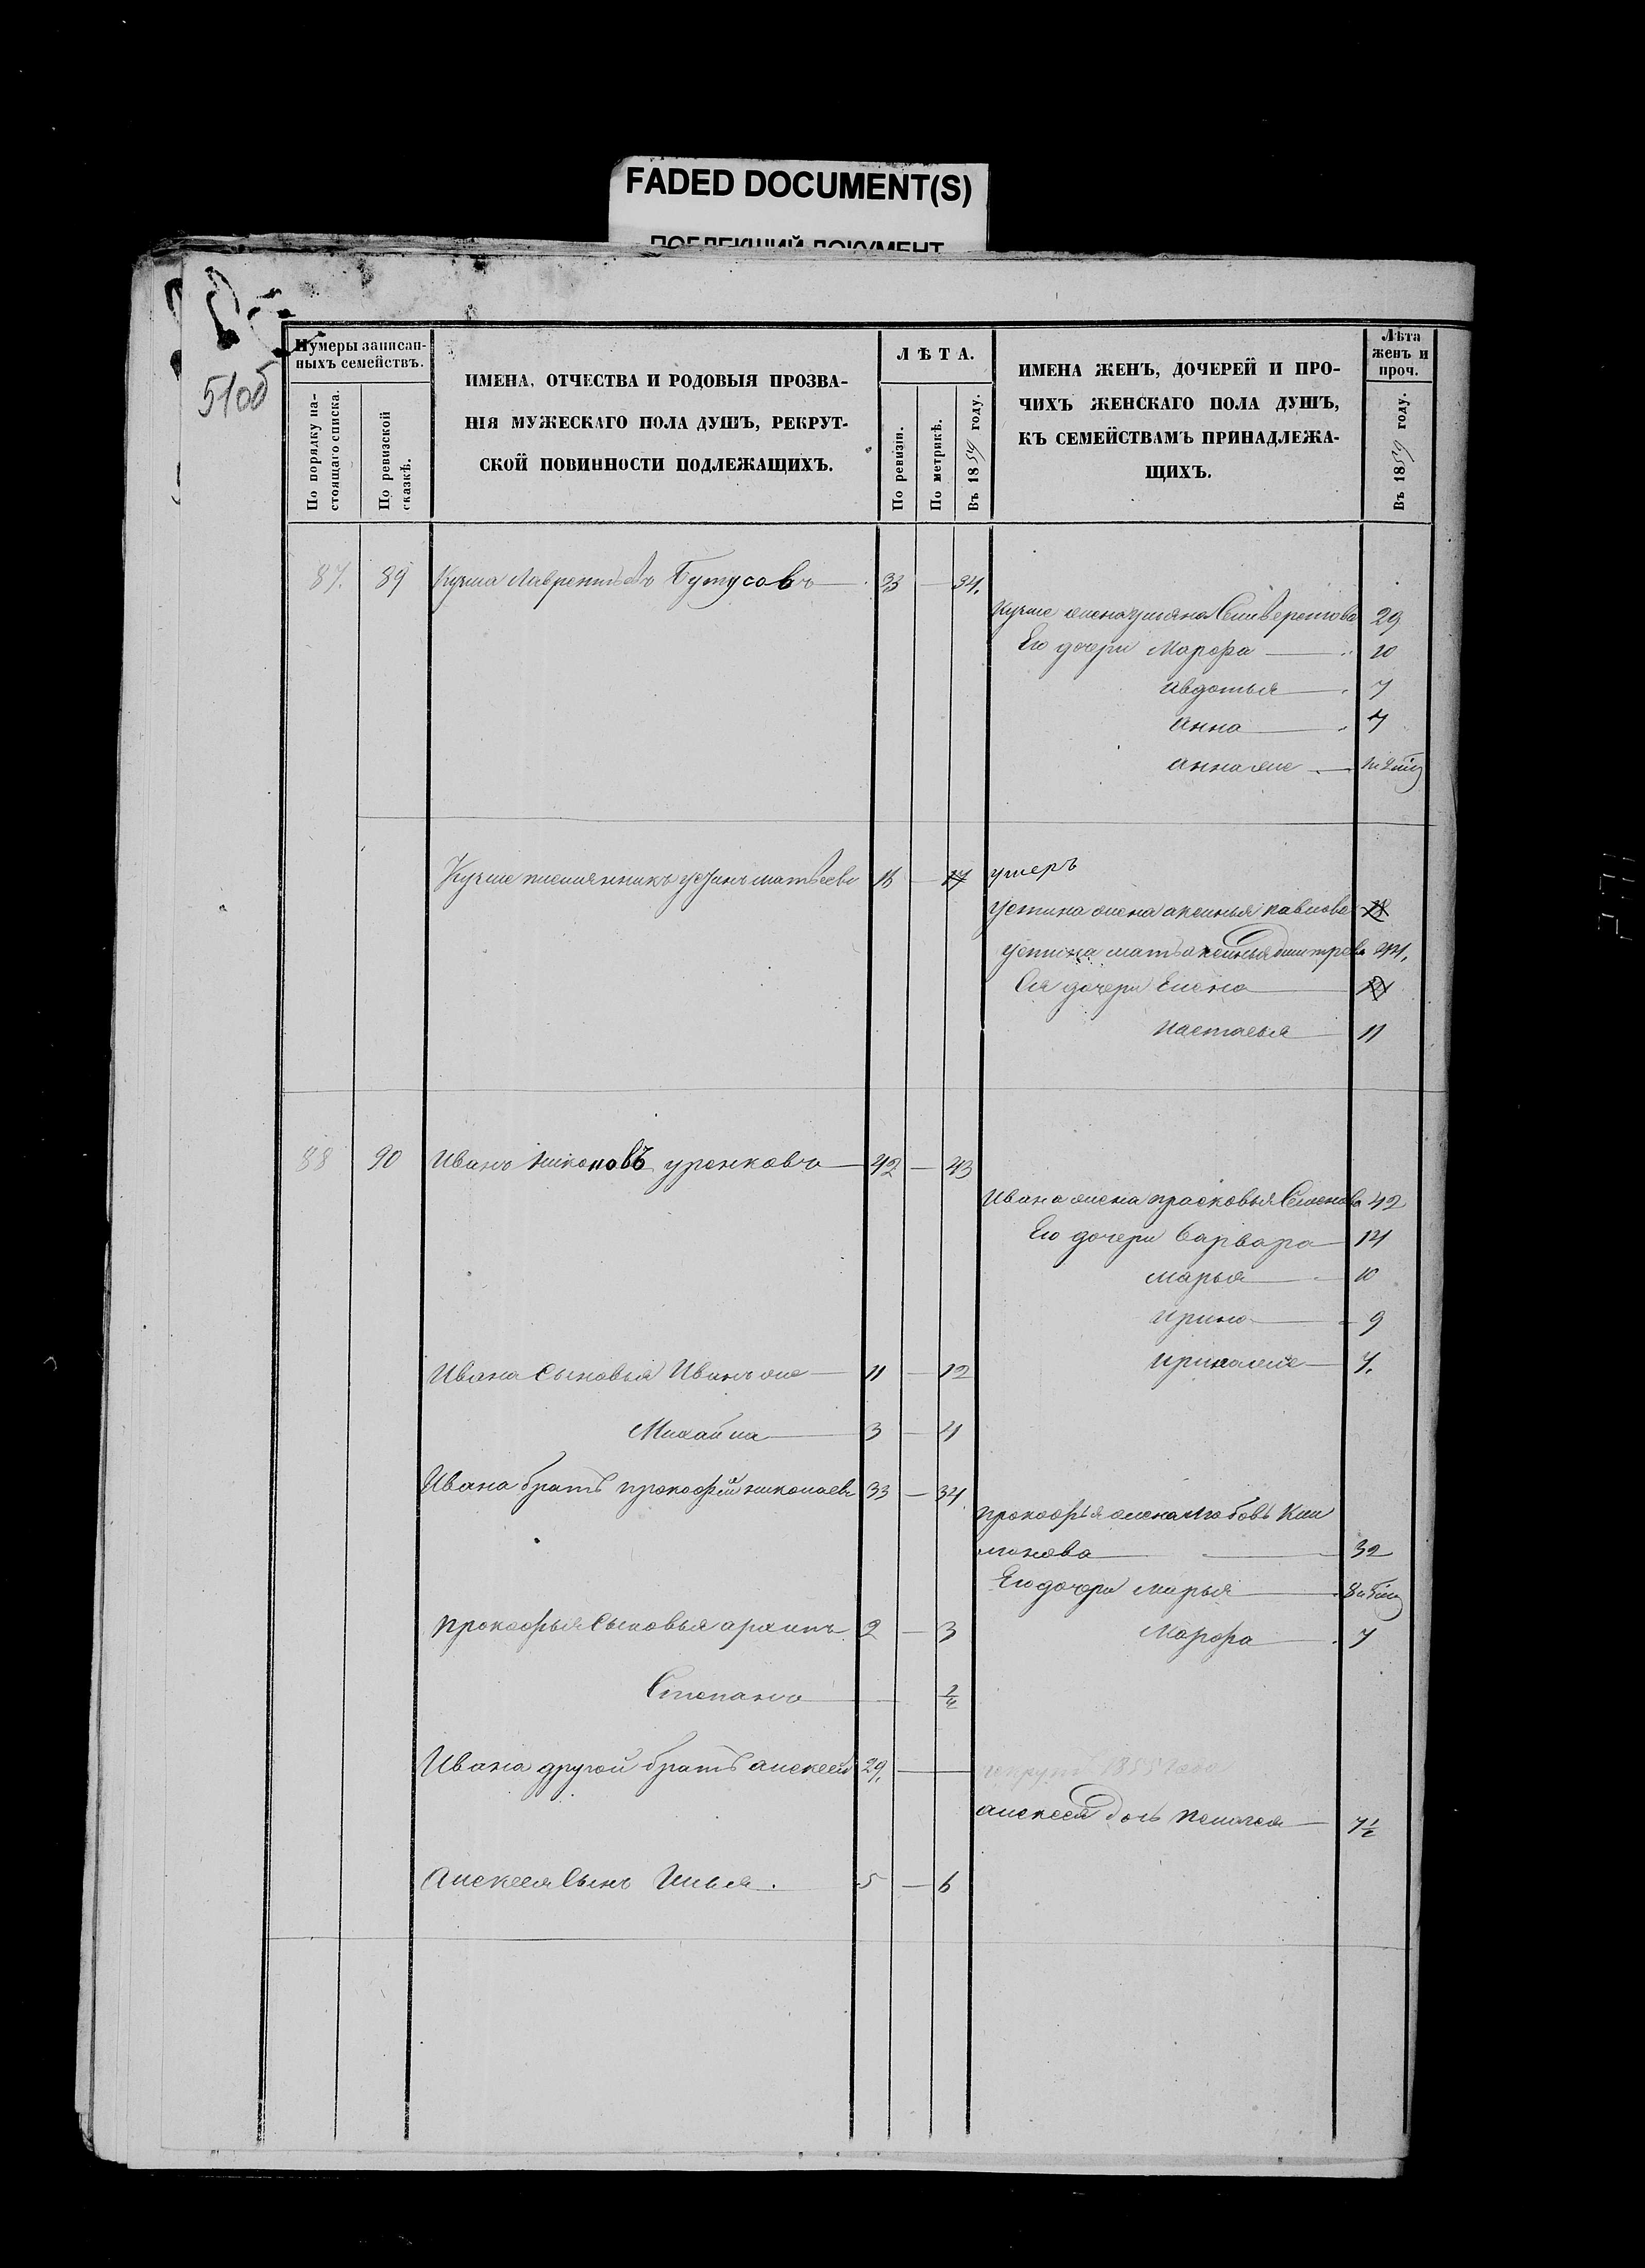 FADED DOCUMENT(S)
ПОБЛЕКШИЙ ДОКУМЕНТ
51об
Нумеры записан-
ныхъ семействъ.
По порядку на-
стоящаго списка.
По ревизской
сказкѣ.
ИМЕНА, ОТЧЕСТВА И РОДОВЫЯ ПРОЗВА-
НІЯ МУЖЕСКАГО ПОЛА ДУШЪ, РЕКРУТ-
СКОЙ ПОВИННОСТИ ПОДЛЕЖАЩИХЪ.
ЛѢТА.
По ревизіи.
По метрикѣ.
Въ 1859 году.
ИМЕНА ЖЕНЪ, ДОЧЕРЕЙ И ПРО-
ЧИХЪ ЖЕНСКАГО ПОЛА ДУШЪ,
КЪ СЕМЕЙСТВАМЪ ПРИНАДЛЕЖА-
ЩИХЪ.
Лѣта
женъ и
проч.
Въ 1859 году.
87. 89 Кузма Лаврентьевъ Бутусовъ 33 — 34.
Кузмы жена Ульяна Селиверстова 29
Его дочери Марфа 10
Авдотья 7
Анна 4
Анна же
Кузмы племянникъ Устинъ Матвѣевъ 16 — 17 умеръ
Устина жена Аксинья Павлова 18
Устина мать Аксинья Дмитрева 44.
Ея дочери Елена
Настасья 11
88 90 Иванъ Никоновъ Уренковъ 42 — 43
Ивана жена Прасковья Семенова 42
Его дочери Варвара 14
Марья 10
Ирина 9
Ирина же 7.
Ивана сыновья Иванъ же 11 — 12
Михайла 3 — 4
Ивана братъ Прокофій Николаевъ 33 — 34
Прокофья жена Любовь Кли
мнова 32
Его дочери Марья
Прокофья сыновья Архипъ 2 — 3
Марфа 7
Степанъ ½
Ивана другой братъ Алексей 29. —
рекрутъ 1855 года
Алексея дочь Пелагея 7½
Алексея сынъ Илья. 5 — 6